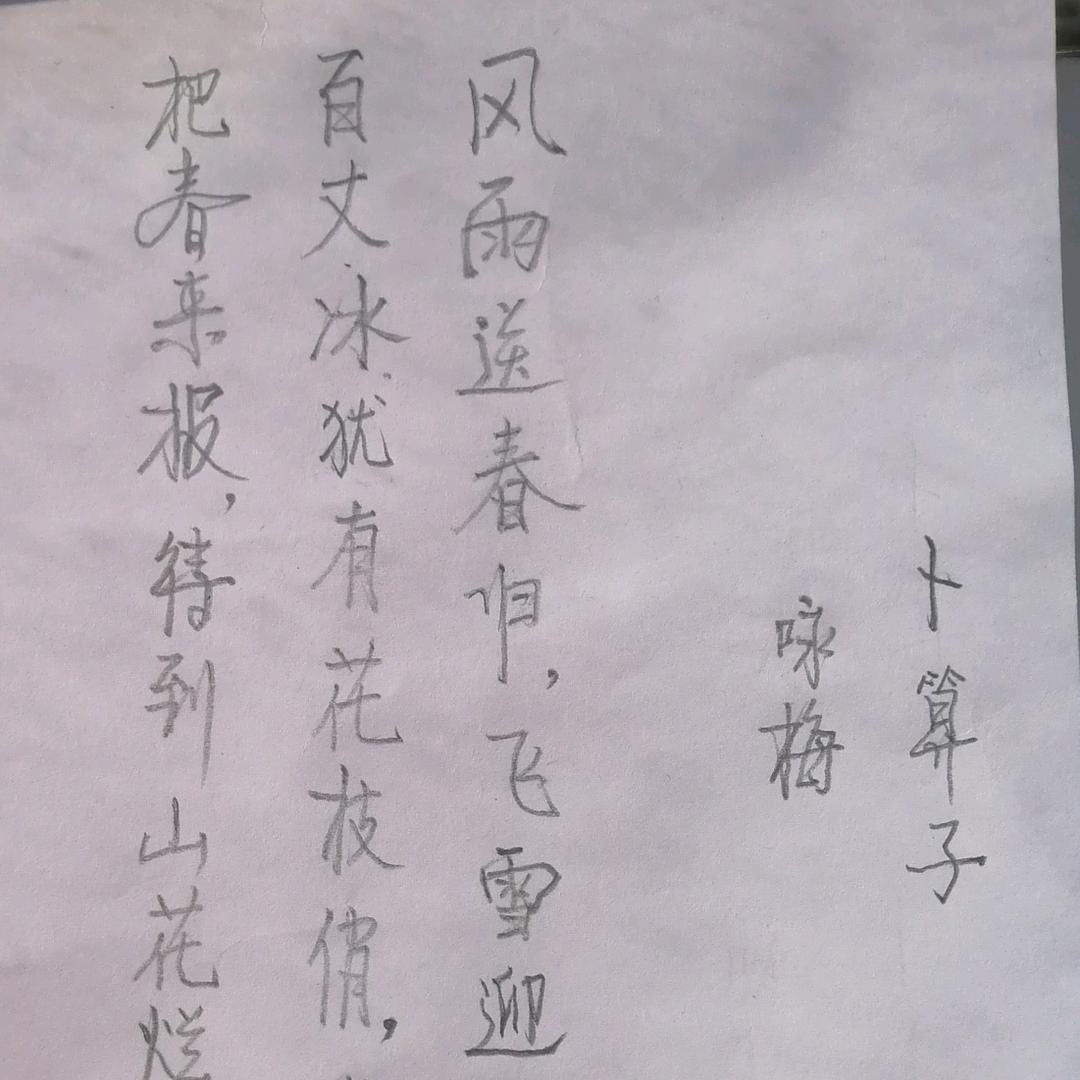 卜算子
咏梅
风雨送春归，飞雪迎
百丈冰犹有花枝俏，
把春来报，待到山花烂